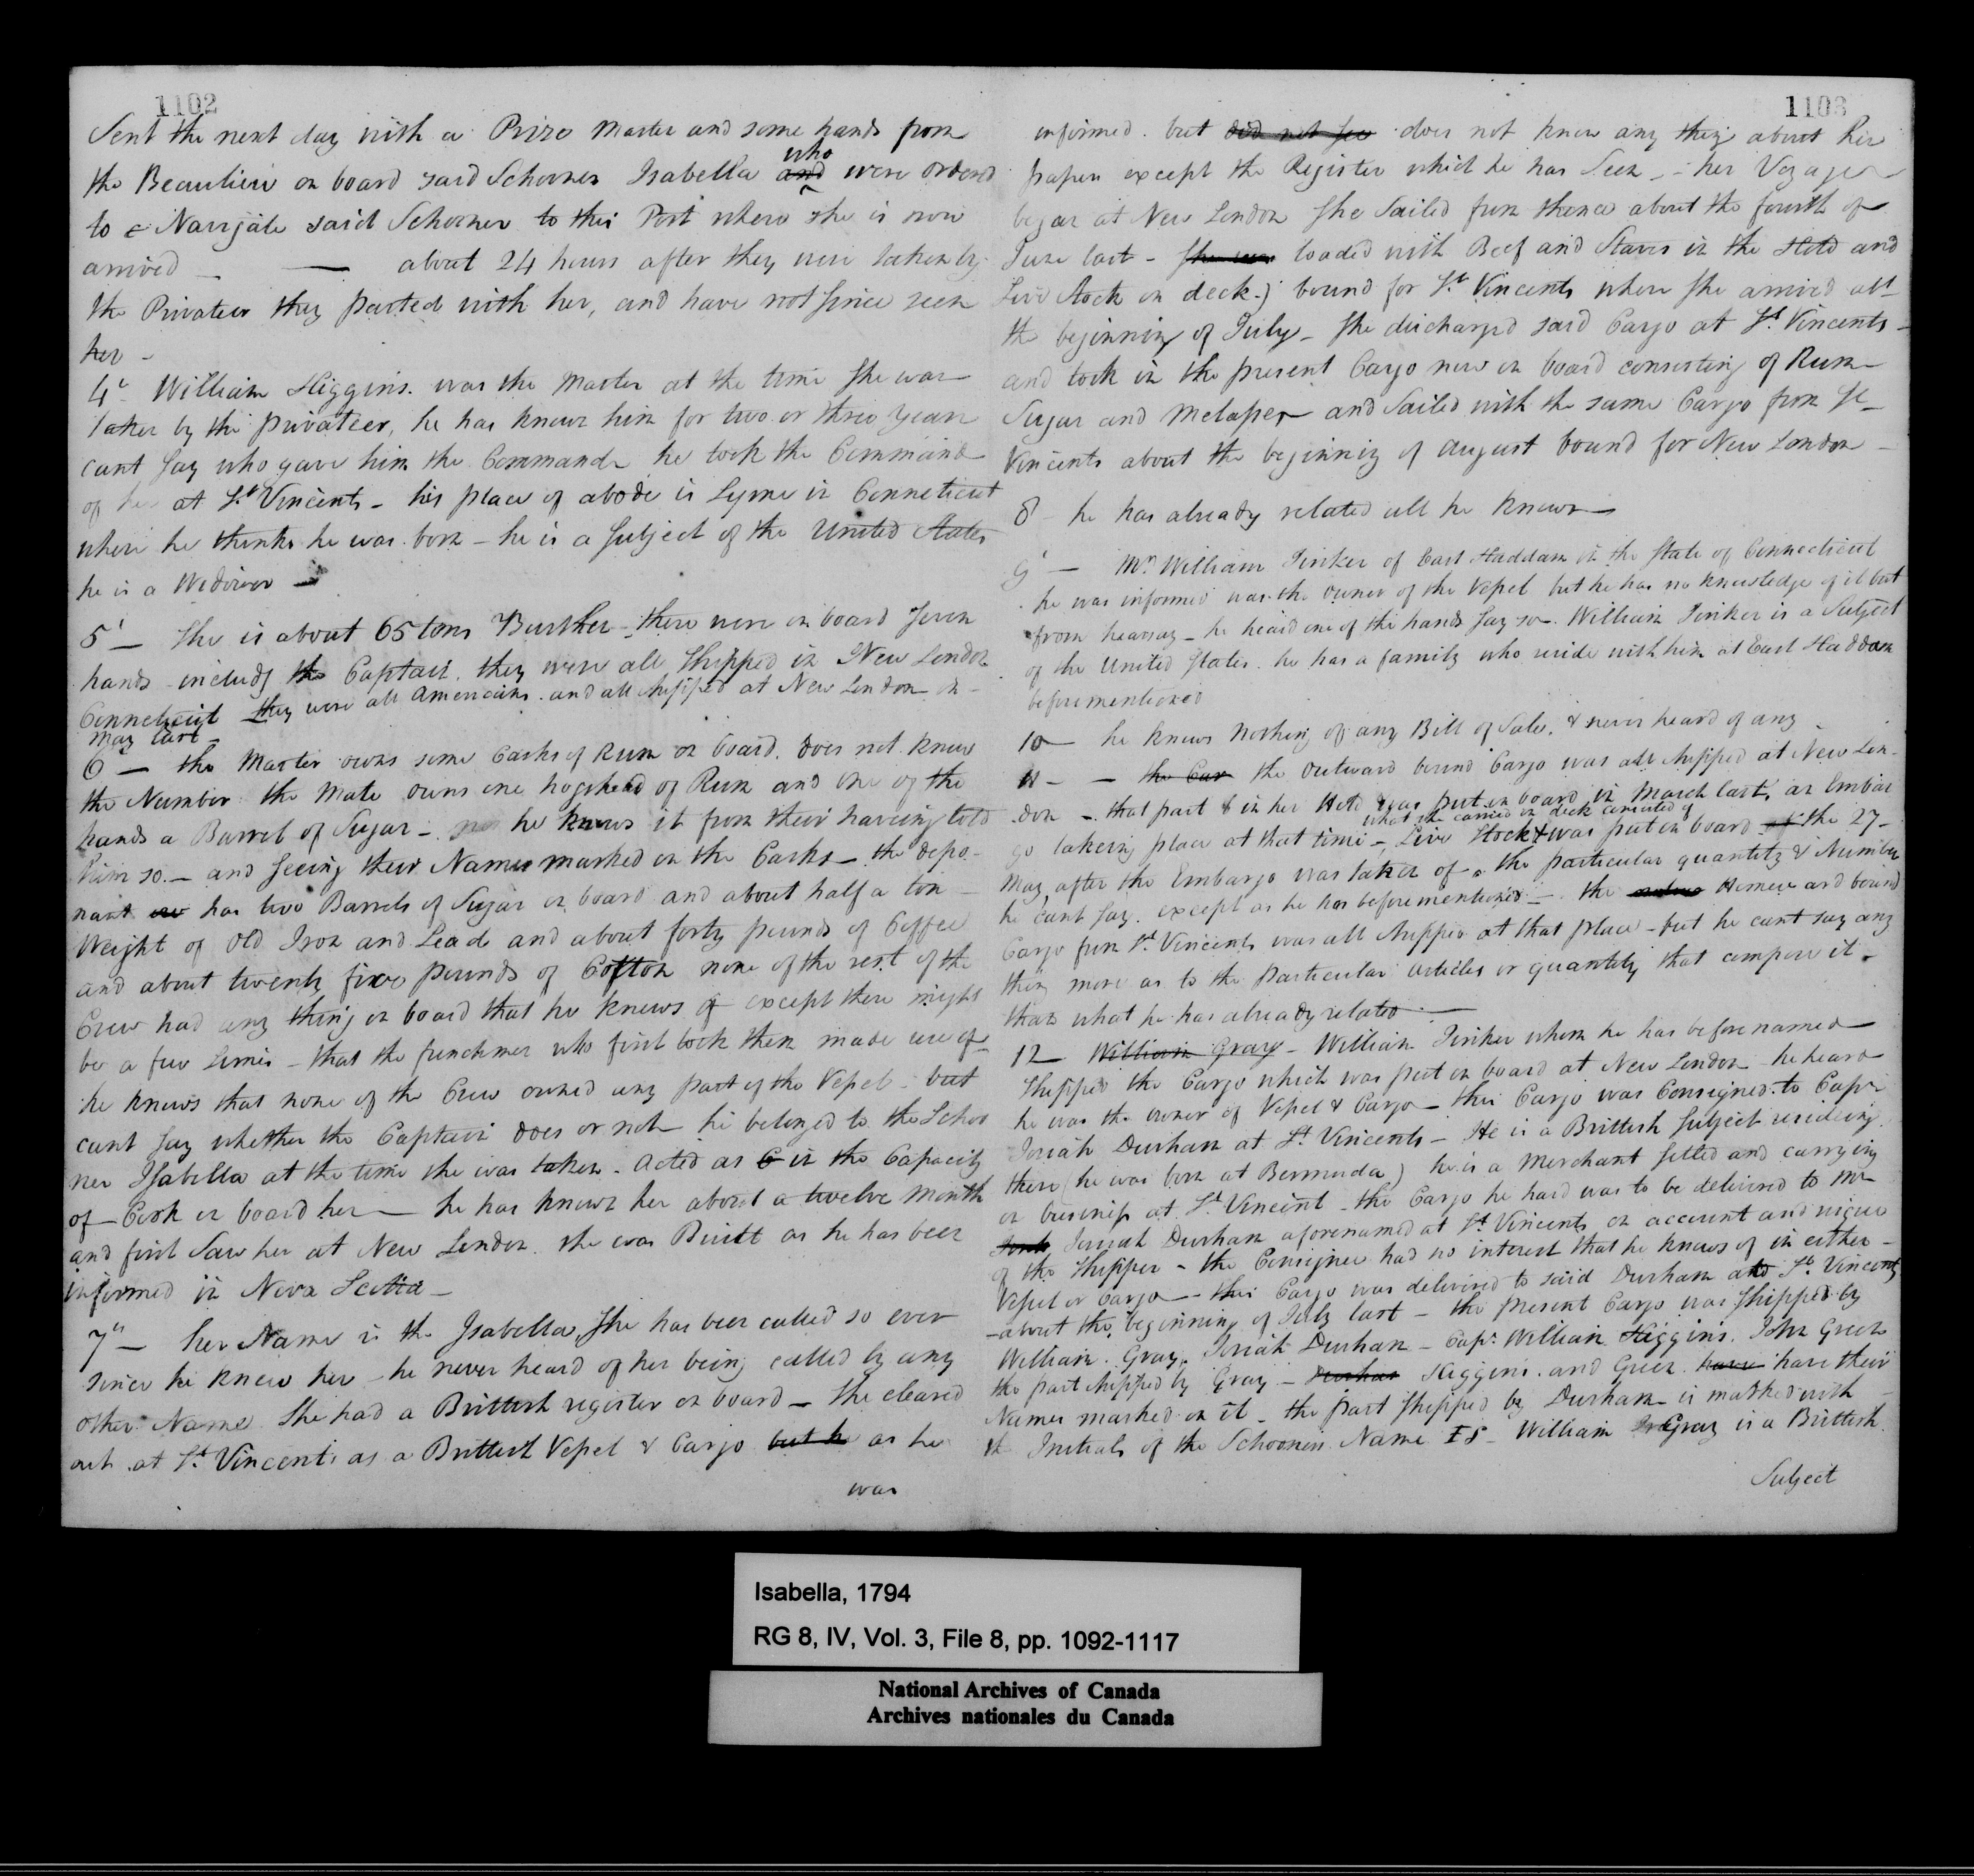 1102
Sent the next day with a Prize Master and some hands from
the Beaulieu on board said Schooner Isabella and who were ordered
to Navigate said Schooner to this Port where she is now
arrived — — about 24 hours after they were taken by
the Privateer they parted with her, and have not since seen
her –
4th William Higgins was the Master at the time She was
taken by the privateer, he has known him for two or three Years
cant Say who gave him the Command he took the Command
of her at St Vincents – his place of abode is Lyme in Conneticut
where he thinks he was born – he is a Subject of the United States
he is a Widower –
5th — She is about 65 tons Burthen – there were on board Seven
hands – includg the Captain. they were all Shipped in New London
Conneticut they were all Americans. and all shipped at New London in –
May last –
6th — the Master owns some Casks of Rum on board. does not know
the Number the Mate owns one hogshead of Rum and one of the
hands a Barrel of Sugar – he knows it from their having told
him so. – and seeing their Names marked on the Casks – the depo-
nant has two Barrels of Sugar on board and about half a ton –
Weight of Old Iron and Lead and about forty pounds of Coffee
and about twenty five pounds of Cotton none of the rest of the
Crew had any thing on board that he knows of except there might
be a few Limes – that the frenchmen who first took them made use of –
he knows that none of the Crew owned any part of the Vessel – but
cant Say whether the Captain does or not – he belonged to the Schoo
ner Isabella at the time she was taken – acted as C in the Capacity
of – Cook on board her — he has known her about a twelve Month
and first Saw her at New London. she was Built as he has been
informed in Nova Scotia –
7th — her Name is the Isabella, She has been called so ever
since he knew her – he never heard of her being called by any
other Name She had a Brittish register on board – She cleared
out at St Vincents as a Brittish Vessel & Cargo but he as he
was
1103
informed. but did not see does not know any thing about her
papers except the Register which he has Seen – – her Voyage
began at New London She Sailed from thence about the fourth of
June last – She was loaded with Beef and Staves in the Hold and
Live Stock on deck –) bound for St Vincents where She arrived abt
the beginning of July – She discharged said Cargo at St Vincents –
and took in the present Cargo now on board consisting of Rum
Sugar and Melasses and Sailed with the same Cargo from St –
Vincents about the beginning of August bound for New London –
8 – he has already related all he knows –
9th — Mr William Tinker of East Haddam in the State of Connecticut
he was informed was the owner of the Vessel but he has no knowledge of it but
from hearsay – he heard one of the hands Say so. William Tinker is a Subject
of the United States. he has a family who reside with him at East Haddam
beforementioned
10 — he knows Nothing of any Bill of Sale. & never heard of any –
11 – – the Car the Outward bound Cargo was all shipped at New Lon-
don – that part in her Hold was put on board in March last, an Embar
what she carried on deck consisted of
go takeing place at that time –, Live Stock & was put on board the 27 –
May after the Embargo was taken of – the particular quantity & Number
he cant Say. except as he has beforementioned – the Homeward bound
Cargo from St Vincents was all Shipped at that place – but he cant say any
thing more as to the particular articles or quantity that compose it –
than what he has already related —
12 — William Gray – William Tinker whom he has before named
Shipped the Cargo which was put on board at New London – he heard
he was the owner of Vessel & Cargo – this Cargo was Consigned to Capn
Josiah Durham at St Vincents – He is a Brittish Subject resideing
there (he was born at Bermuda) he is a Merchant Setled and carrying
on business at St Vincent – the Cargo he had was to be delivered to Mr
Josiah Durham aforenamed at St Vincents on account and risque
of the Shipper – the Consignee had no interest that he knows of in either –
Vessel or Cargo – this Cargo was delivered to said Durham at St Vincents
– about the beginning of July last – the present Cargo was Shipped by
William Gray, Josiah Durham – Capn William Higgins. John Green
the part shipped by Gray – Durham Higgins. and Green have have their
Names marked on it – the part Shipped by Durham is marked with –
the Initials of the Schooners Name IS – William Gray is a Brittish
Subject
Isabella, 1794
RG 8, IV, Vol. 3, File 8, pp. 1092-1117
National Archives of Canada
Archives nationales du Canada